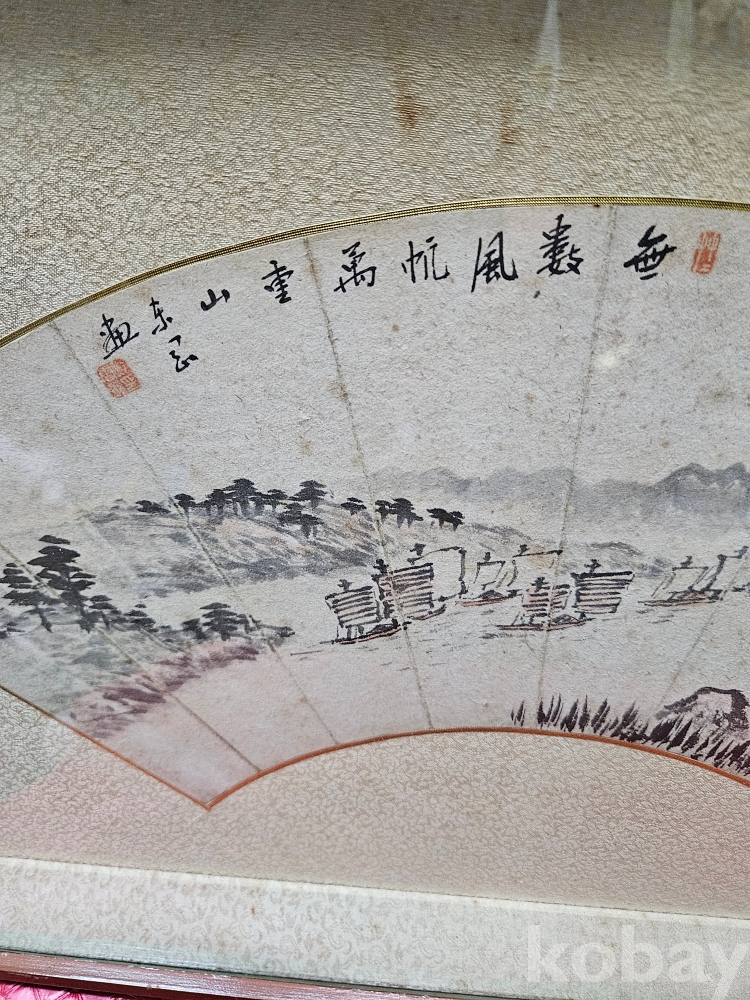 無數風帆萬重山
東
畫
kobay